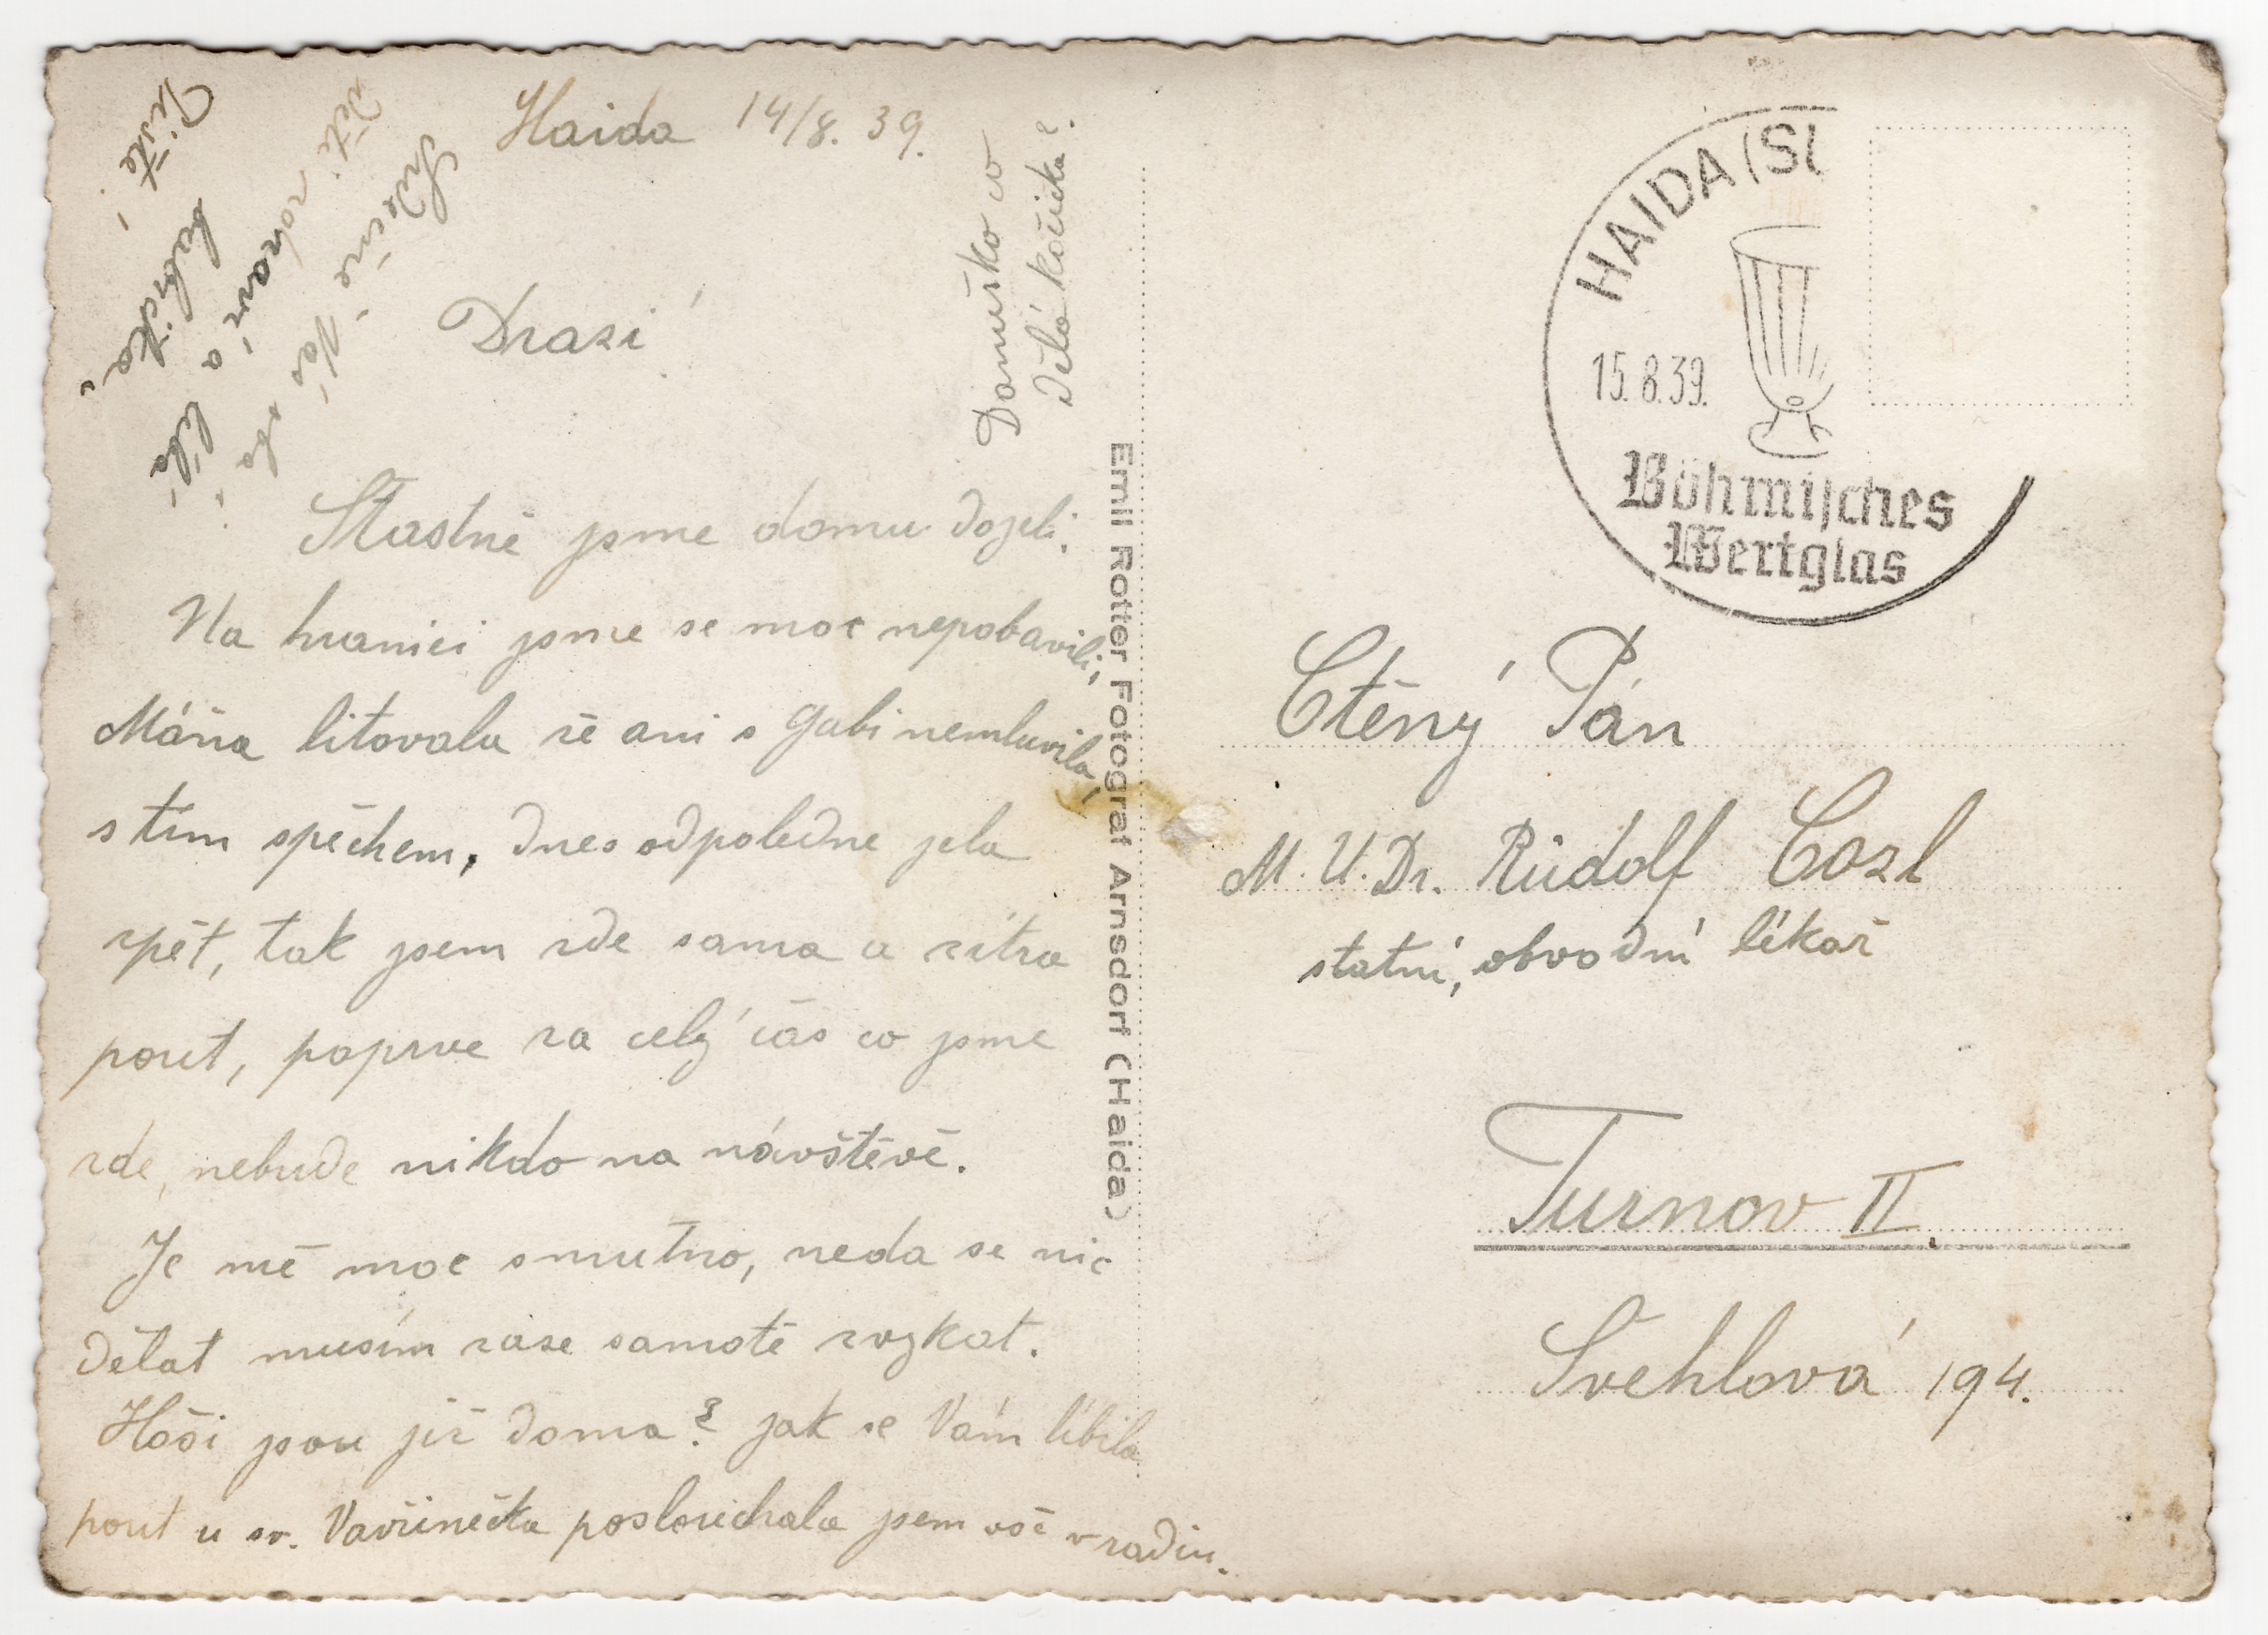 Haida 14/8. 39.
Drazí
Štastně jsme domu dojeli,
Na hranici jsme se moc nepobavili,
Máňa litovala že ani s Gabi nemluvila,
s tím spěchem, dnes odpoledne jela
zpět, tak jsem zde sama a zítra
pout, poprve za celý čas co jsme
zde, nebude nikdo na návštěvě.
Je mě moc smutno, neda se nic
dělat musím zase samotě zvykat.
Hoši jsou již doma? jak se Vám líbila
pout u sv. Vavřinečka poslouchala jsem vše v radiu.
Srdečně Vás
zdraví a líbá
Pište!
Domiško co
dělá kočička?
Emil Rotter Fotograf Arnsdorf (Haida)
HAIDA (SU
15.8.39.
Böhmisches
Wertglas
Ctěný Pán
M.U.Dr. Rudolf Cozl
statní, obvodní lékař
Turnov II.
Švehlová 194.